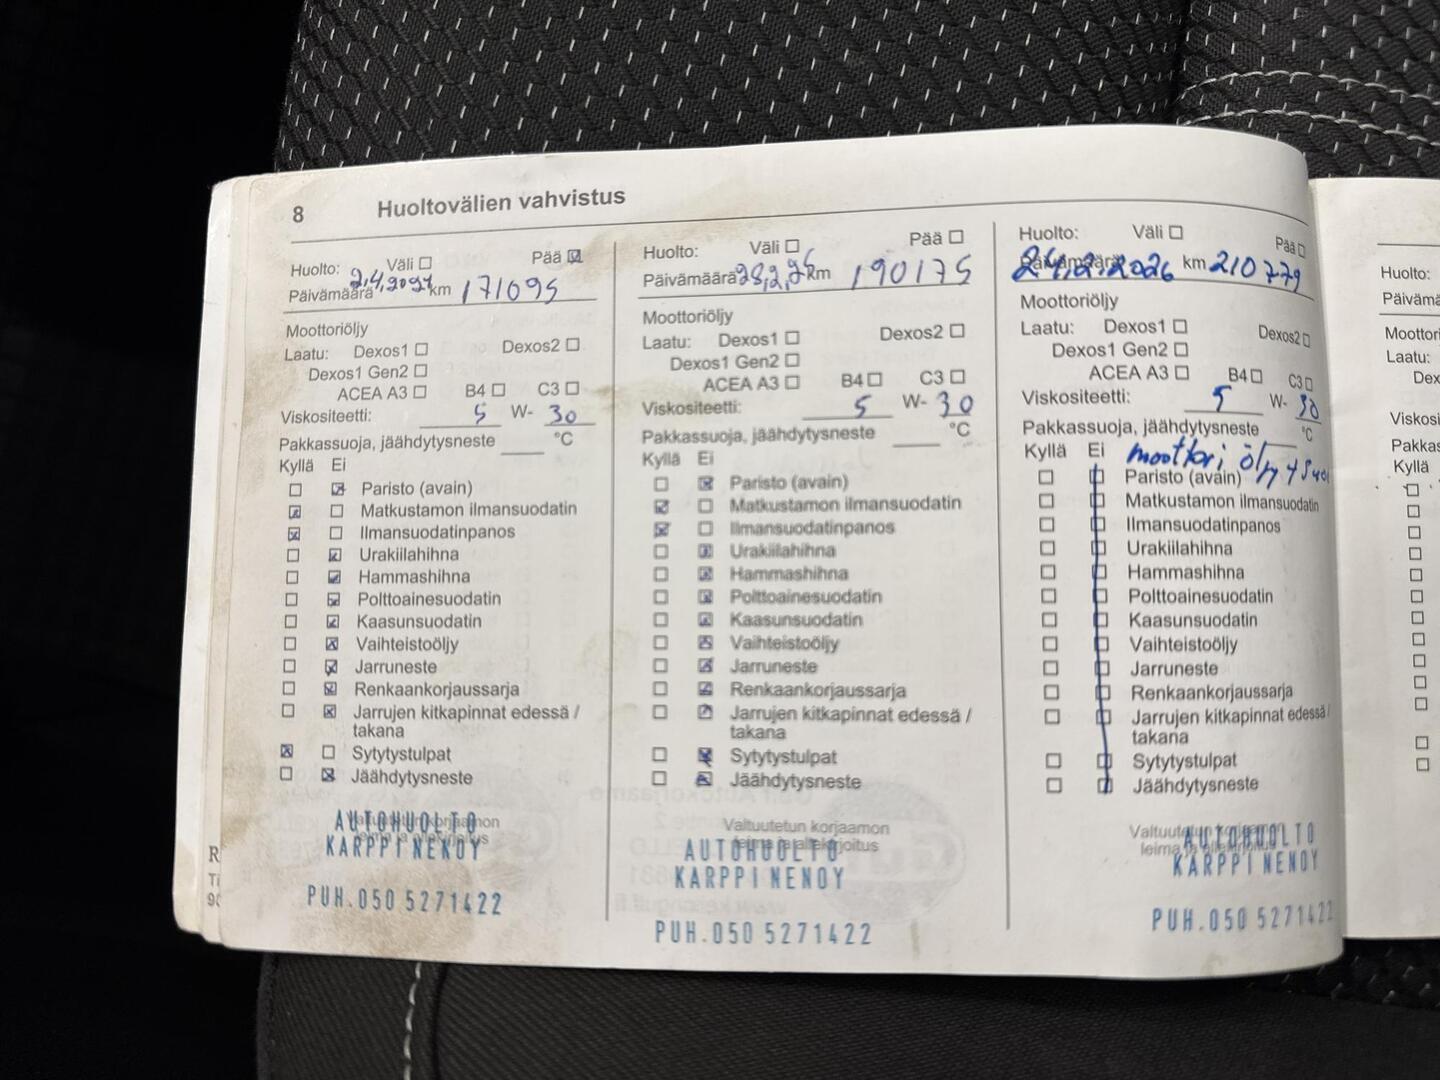 8 Huoltovälien vahvistus
Huolto: Väli Pää
Päivämäärä 2,4,2024 km 171095
Moottoriöljy
Laatu: Dexos1 Dexos2
Dexos1 Gen2
ACEA A3 B4 C3
Viskositeetti: 5 W- 30
Pakkassuoja, jäähdytysneste °C
Kyllä Ei
Paristo (avain)
Matkustamon ilmansuodatin
Ilmansuodatinpanos
Urakiilahihna
Hammashihna
Polttoainesuodatin
Kaasunsuodatin
Vaihteistoöljy
Jarruneste
Renkaankorjaussarja
Jarrujen kitkapinnat edessä /
takana
Sytytystulpat
Jäähdytysneste
Valtuutetun korjaamon
leima ja allekirjoitus
AUTOHUOLTO
KARPPINEN OY
PUH.050 5271422
Huolto: Väli Pää
Päivämäärä 28,2,25 km 190175
Moottoriöljy
Laatu: Dexos1 Dexos2
Dexos1 Gen2
ACEA A3 B4 C3
Viskositeetti: 5 W- 30
Pakkassuoja, jäähdytysneste °C
Kyllä Ei
Paristo (avain)
Matkustamon ilmansuodatin
Ilmansuodatinpanos
Urakiilahihna
Hammashihna
Polttoainesuodatin
Kaasunsuodatin
Vaihteistoöljy
Jarruneste
Renkaankorjaussarja
Jarrujen kitkapinnat edessä /
takana
Sytytystulpat
Jäähdytysneste
Valtuutetun korjaamon
leima ja allekirjoitus
AUTOHUOLTO
KARPPINEN OY
PUH.050 5271422
Huolto: Väli Pää
Päivämäärä 24,2,2026 km 210779
Moottoriöljy
Laatu: Dexos1 Dexos2
Dexos1 Gen2
ACEA A3 B4 C3
Viskositeetti: 5 W- 30
Pakkassuoja, jäähdytysneste °C
Kyllä Ei moottori öljy
Paristo (avain)
Matkustamon ilmansuodatin
Ilmansuodatinpanos
Urakiilahihna
Hammashihna
Polttoainesuodatin
Kaasunsuodatin
Vaihteistoöljy
Jarruneste
Renkaankorjaussarja
Jarrujen kitkapinnat edessä /
takana
Sytytystulpat
Jäähdytysneste
Valtuutetun korjaamon
leima ja allekirjoitus
AUTOHUOLTO
KARPPINEN OY
PUH.050 5271422
Huolto:
Päivämä
Moottori
Laatu:
Dex
Viskosi
Pakkas
Kyllä